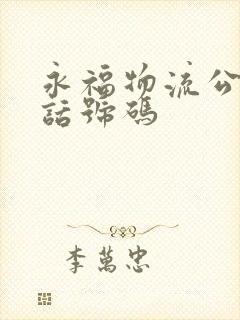 永福物流公
話號碼
李萬忠